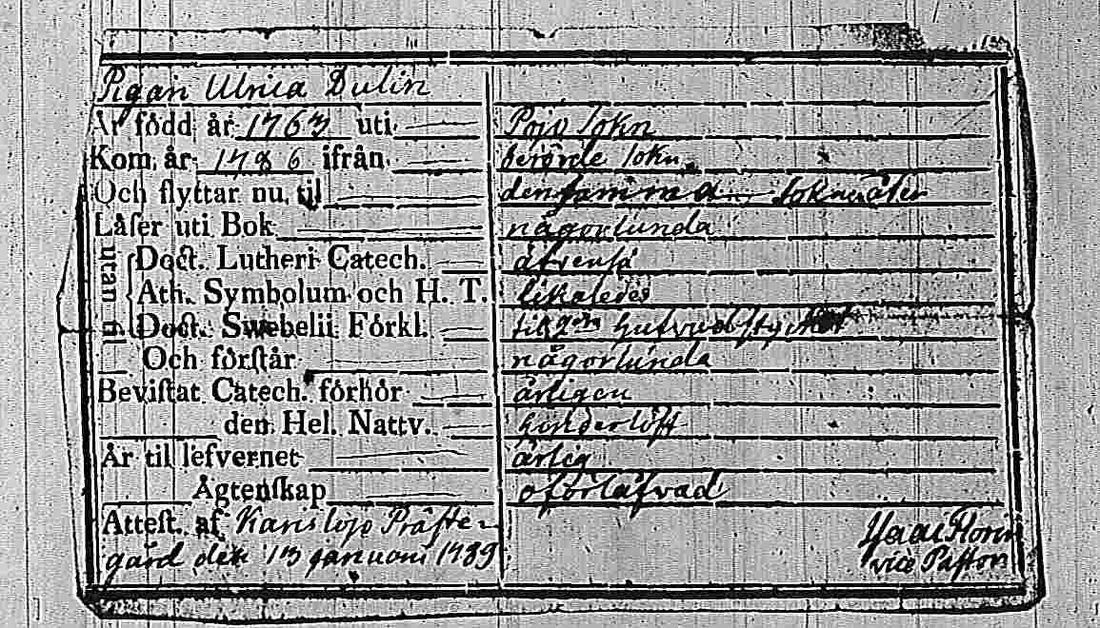 Pigan Ulrica Dulin
Är född år 1763 uti Pojo Sokn
Kom år 1786 ifrån berörde Sokn
Och flyttar nu til den samma Sokn åter
Låser uti Bok någorlunda
utan til
Doct. Lutheri Catech. äfvenså
Ath. Symbolum och H. T. likaledes
Doct. Swebelii Förkl. til 2dra hufvudstycket
Och förſtår någorlunda
Beviſtat Catech. förhör årligen
den Hel. Nattv.
Är til lefvernet ärlig
Ägtenſkap oförlåfvad
Atteſt. af Karislojo Präſte-
gård den 13 Januari 1789
Florin
vice Paſtor